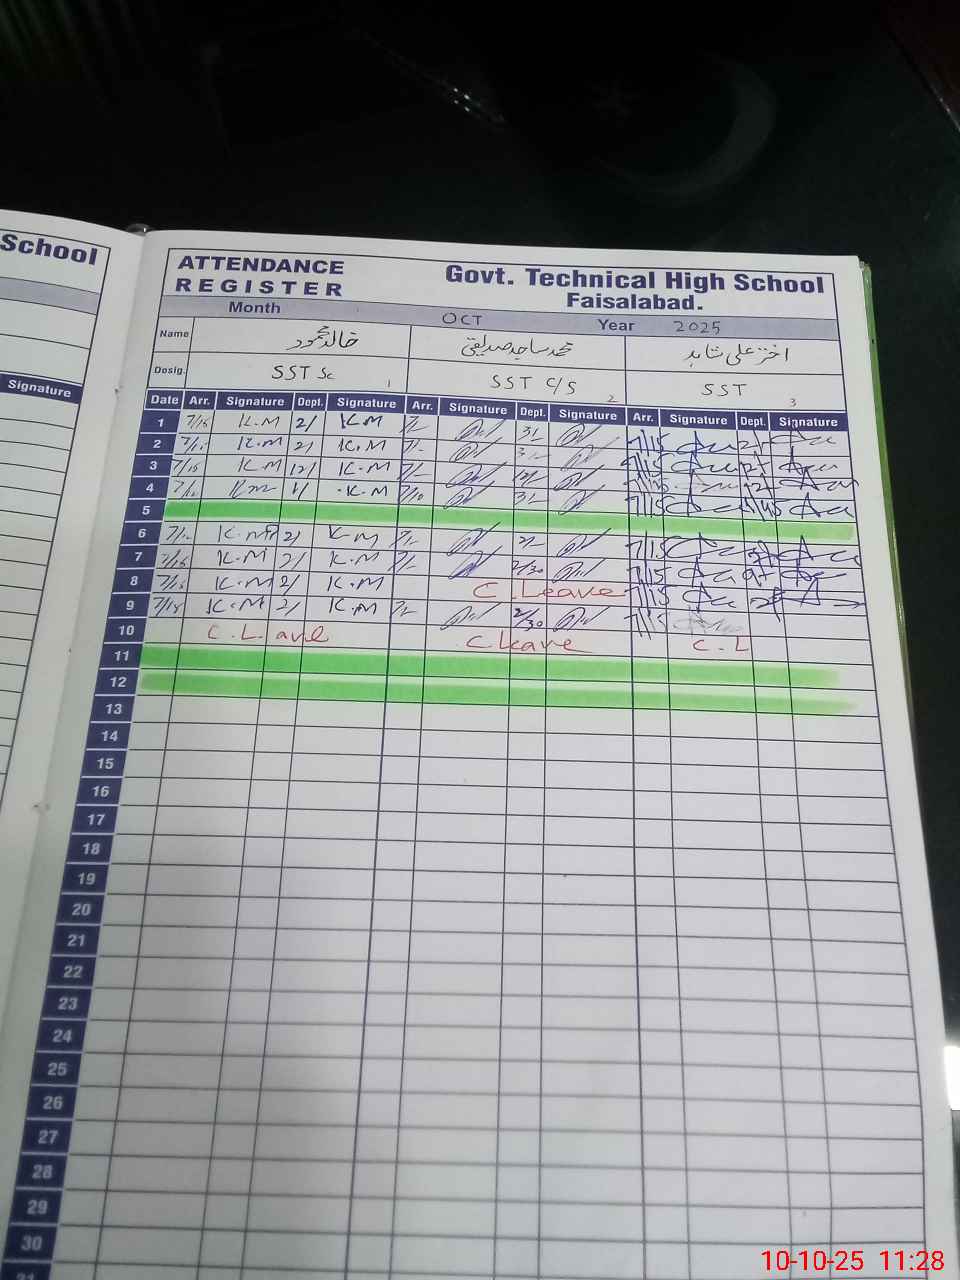 School
Signature
ATTENDANCE
REGISTER
Govt. Technical High School
Faisalabad.
Month OCT Year 2025
Name خالد محمود محمد ساجد صدیقی اختر علی شاہد
Desig. SST Sc 1 SST C/S 2 SST 3
Date Arr. Signature Dept. Signature Arr. Signature Dept. Signature Arr. Signature Dept. Signature
1 7/15 K.M 2/ K.M
2 K.M 2/ K.M 7/15
3 7/15 K.M 12/ K.M 7/15
4 K.M 7/10
5 7/15
6 K.M 2/ K.M
7 7/15 K.M 2/ K.M 2/30 7/15
8 7/15 K.M 2/ K.M C. Leave 7/15
9 7/15 K.M 2/ K.M 2/30 7/15
10 C. L. ave C leave C. L
11
12
13
14
15
16
17
18
19
20
21
22
23
24
25
26
27
28
29
30
31
10-10-25 11:28